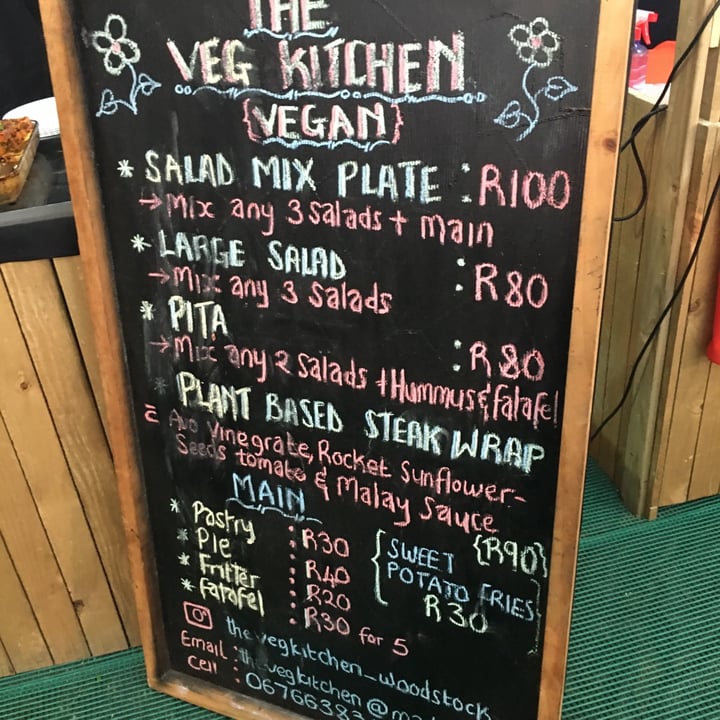 THE
VEG KITCHEN
{VEGAN}
* SALAD MIX PLATE : R100
→ Mix any 3 salads + main
* LARGE SALAD : R80
→ Mix any 3 Salads
* PITA : R80
→ Mix any 2 Salads + Hummus & falafel
* PLANT BASED STEAK WRAP
c̄ Avo Vinegrate, Rocket Sunflower-
Seeds tomato & Malay Sauce
{R90}
MAIN
* Pastry : R30
* Pie : R40
* Fritter : R20
* Falafel : R30 for 5
SWEET
POTATO FRIES
R30
the vegkitchen_woodstock
Email : thevegkitchen@
Cell : 06766383